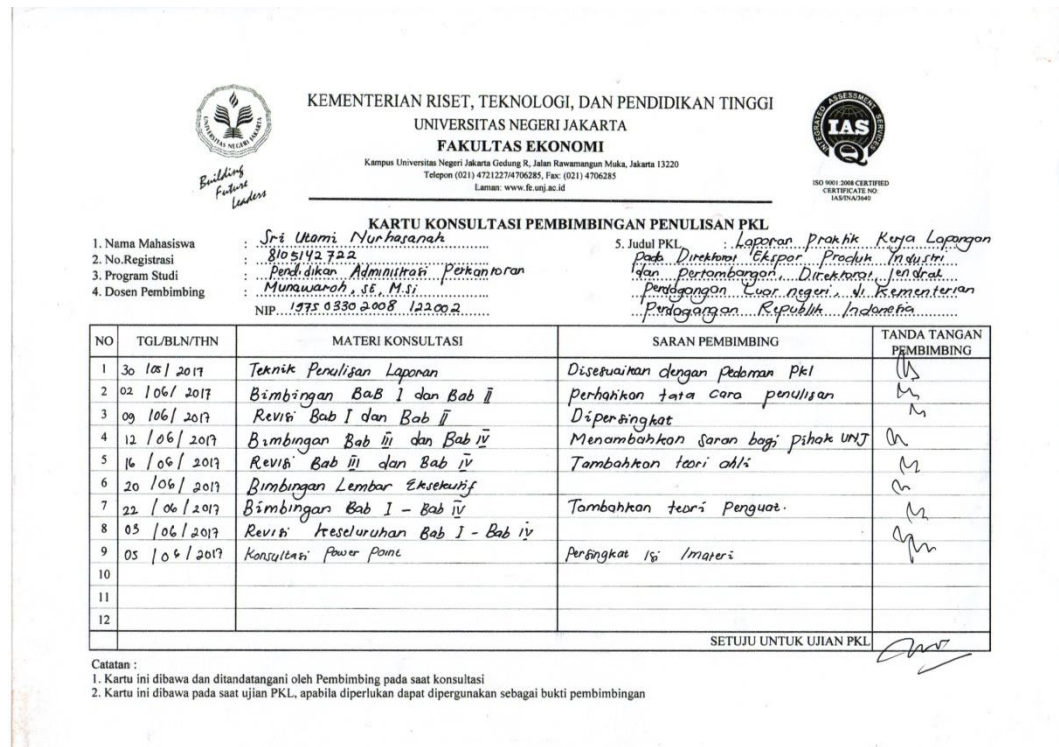 KEMENTERIAN RISET, TEKNOLOGI, DAN PENDIDIKAN TINGGI
UNIVERSITAS NEGERI JAKARTA
FAKULTAS EKONOMI
Kampus Universitas Negeri Jakarta Gedung R, Jalan Rawamangun Muka, Jakarta 13220
Telepon (021) 4721227/4706285, Fax: (021) 4706285
Laman: www.fe.unj.ac.id
UNIVERSITAS NEGERI JAKARTA
Building
Future
Leaders
INTEGRATED ASSESSMENT SERVICES
IAS
ISO 9001:2008 CERTIFIED
CERTIFICATE NO:
IAS/INA/3640
KARTU KONSULTASI PEMBIMBINGAN PENULISAN PKL
1. Nama Mahasiswa : Sri Utami Nurhasanah
2. No.Registrasi : 8105142722
3. Program Studi : Pendidikan Administrasi Perkantoran
4. Dosen Pembimbing : Munawaroh, SE, M.Si
NIP. 19750330 2008 122002
5. Judul PKL : Laporan Praktik Kerja Lapangan
Pada Direktorat Ekspor Produk Industri
dan Pertambangan, Direktorat Jendral
Perdagangan Luar negeri, di Kementerian
Perdagangan Republik Indonesia
NO TGL/BLN/THN MATERI KONSULTASI SARAN PEMBIMBING TANDA TANGAN PEMBIMBING
1 30 /05/ 2017 Teknik Penulisan Laporan Disesuaikan dengan Pedoman Pkl
2 02 /06/ 2017 Bimbingan BaB I dan Bab II Perhatikan tata cara penulisan
3 09 /06/ 2017 Revisi Bab I dan Bab II Dipersingkat
4 12 /06/ 2017 Bimbingan Bab III dan Bab IV Menambahkan Saran bagi Pihak UNJ
5 16 /06/ 2017 Revisi Bab III dan Bab IV Tambahkan teori ahli
6 20 /06/ 2017 Bimbingan Lembar Eksekutif
7 22 /06/ 2017 Bimbingan Bab I - Bab IV Tambahkan teori Penguat.
8 /06/ 2017 Revisi keseluruhan Bab I - Bab IV
9 05 /06/ 2017 Konsultasi Power Point Persingkat Isi /materi
10
11
12
SETUJU UNTUK UJIAN PKL
Catatan :
1. Kartu ini dibawa dan ditandatangani oleh Pembimbing pada saat konsultasi
2. Kartu ini dibawa pada saat ujian PKL, apabila diperlukan dapat dipergunakan sebagai bukti pembimbingan